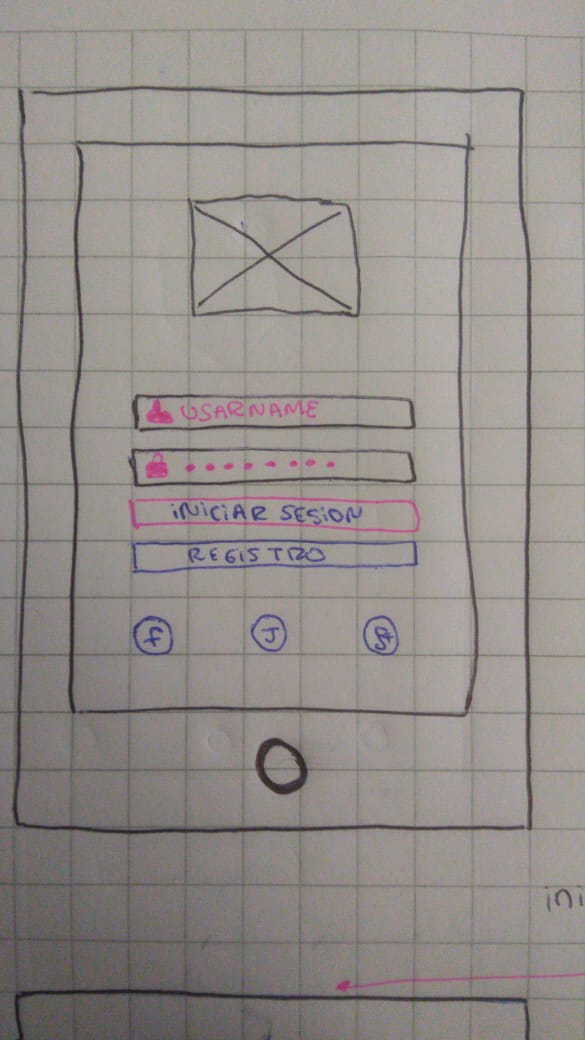 USARNAME
INICIAR SESION
REGISTRO
f
g+
ini